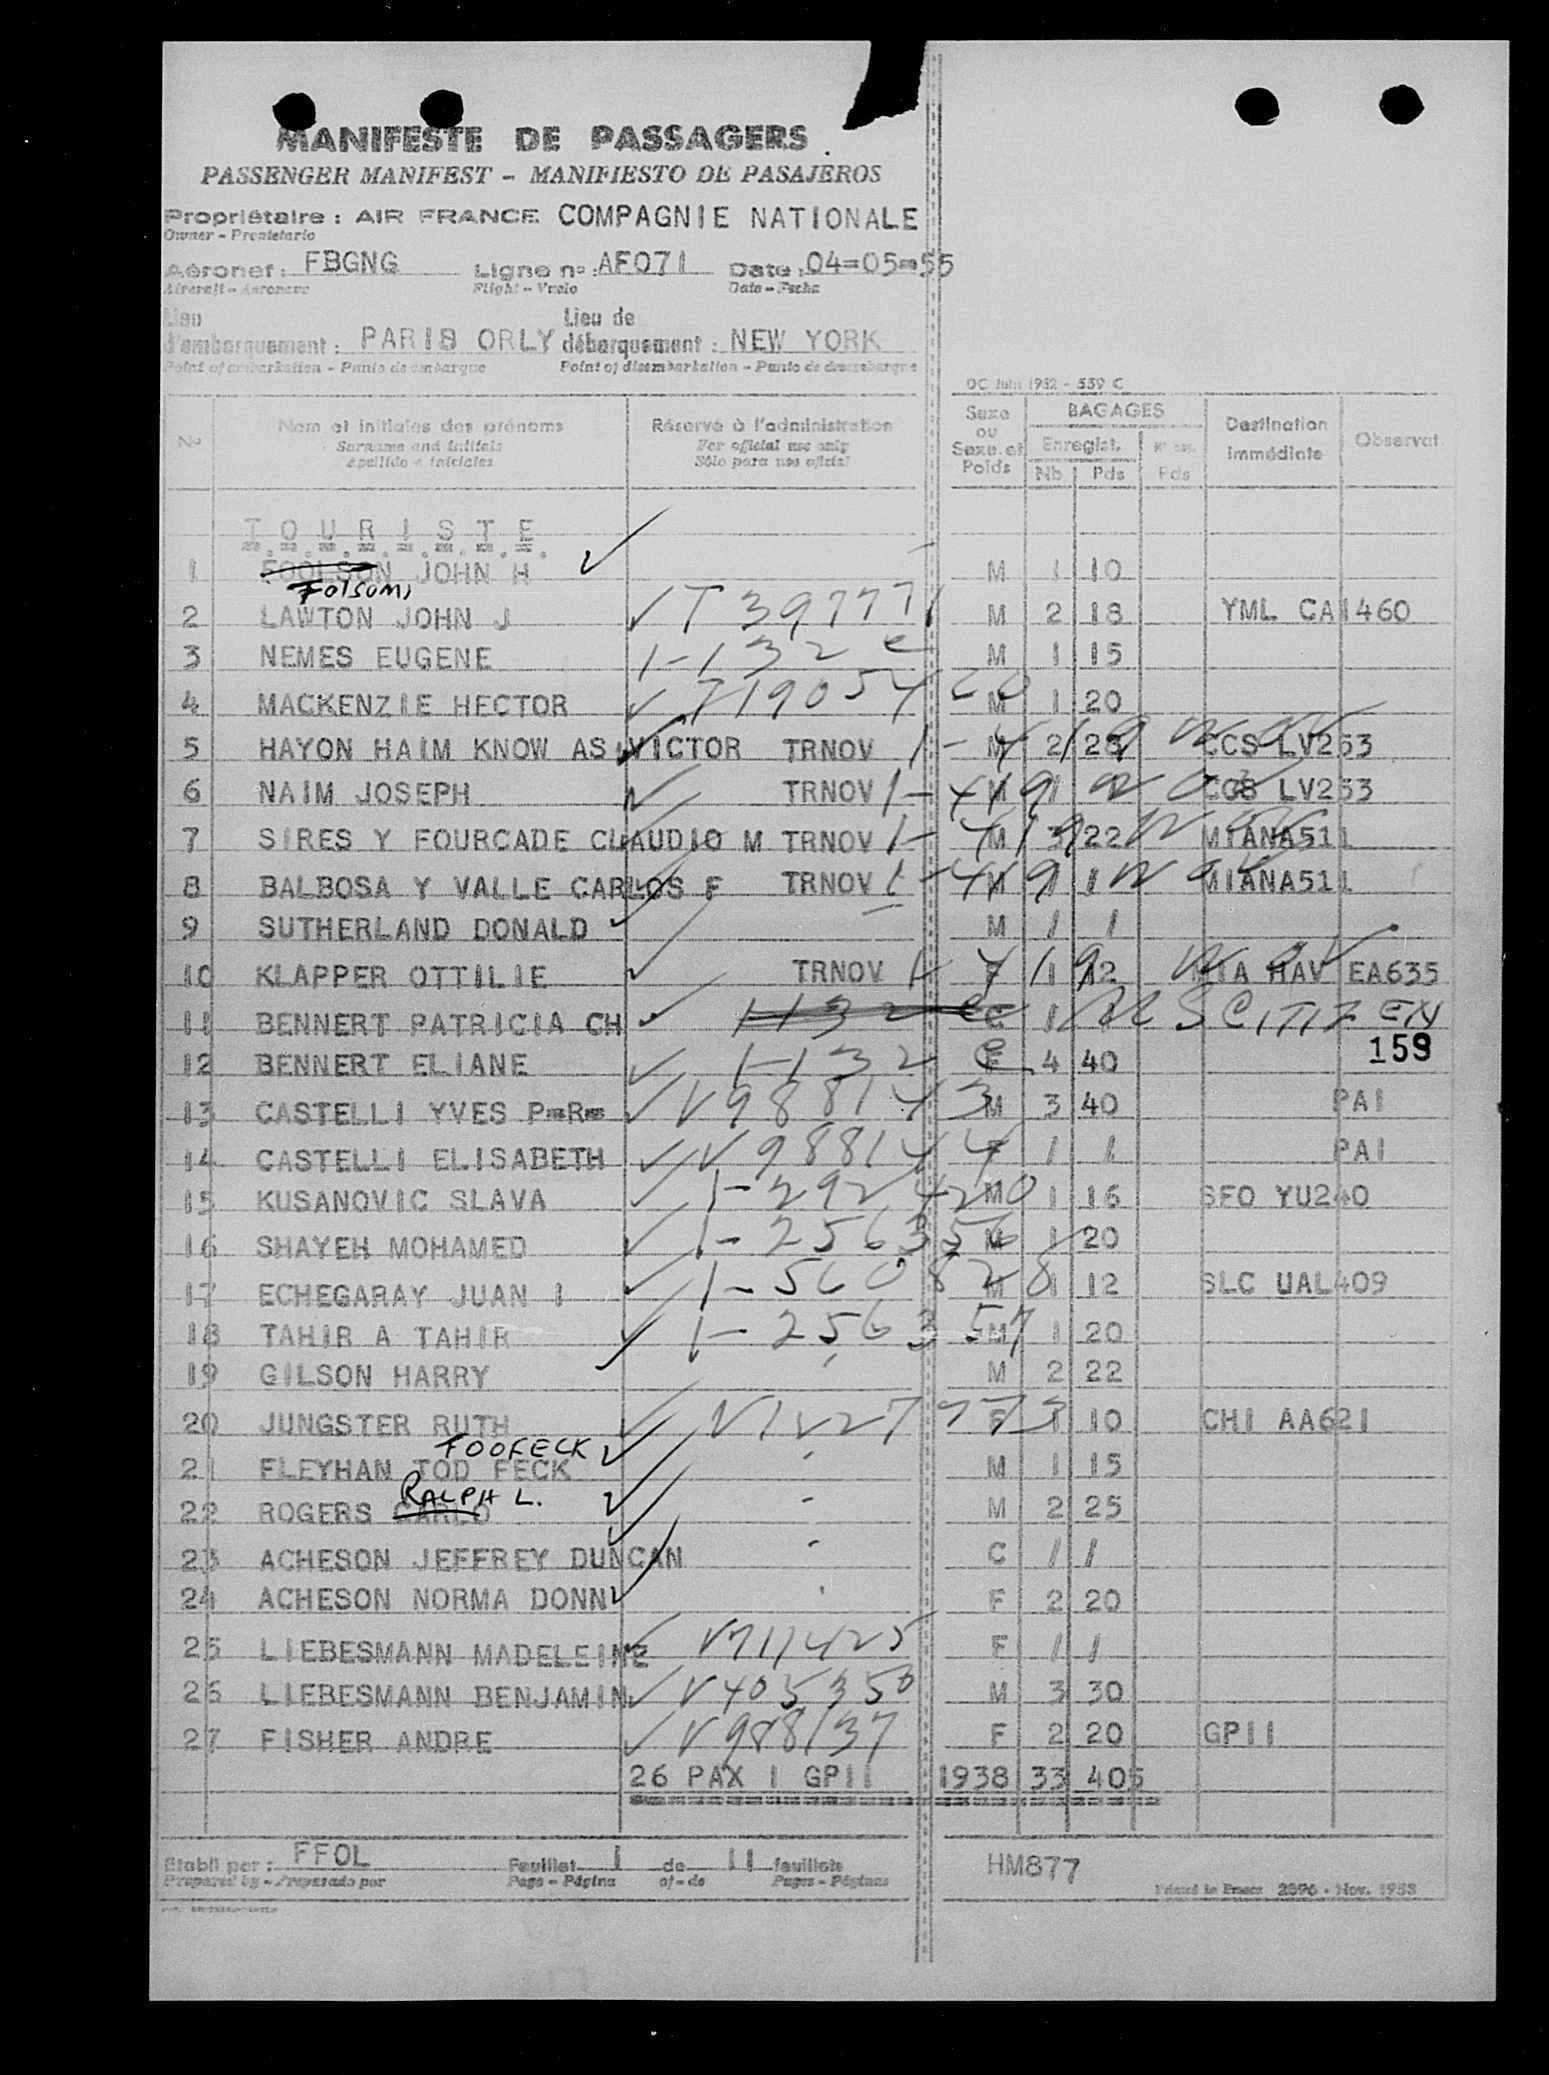 MANIFESTE DE PASSAGERS
PASSENGER MANIFEST - MANIFIESTO DE PASAJEROS
Propriétaire : AIR FRANCE COMPAGNIE NATIONALE
Owner - Propietario
Aéronef : FBGNG Ligne nº : AF071 Date : 04=05=55
Aircraft - Aeronave Flight - Vuelo Date - Fecha
Lieu d'embarquement : PARIS ORLY Lieu de débarquement : NEW YORK
Point of embarkation - Punto de embarque Point of disembarkation - Punto de desembarque
OC Juin 1952 - 559 C
Nº Nom et initiales des prénoms Réservé à l'administration Sexe ou Sexe et Poids BAGAGES Destination immédiate Observat.
Surname and initials For official use only Enregist.
Apellido e iniciales Sólo para uso oficial Nb Pds Pds
T.O.U.R.I.S.T.E.
1 FOOLSON JOHN H ✓ M 1 10
Folsom
2 LAWTON JOHN J ✓ T 397771 M 2 18 YML CA1460
3 NEMES EUGENE 1-132 e M 1 15
4 MACKENZIE HECTOR ✓ T19054 M 1 20
5 HAYON HAIM KNOW AS VICTOR TRNOV 1-419 M 2 28 CCS LV253
6 NAIM JOSEPH ✓ TRNOV 1-419 M 1 CCS LV253
7 SIRES Y FOURCADE CLAUDIO M TRNOV 1-419 M 3 22 MIANA511
8 BALBOSA Y VALLE CARLOS F TRNOV 1-419 M / / MIANA511
9 SUTHERLAND DONALD ✓ M / /
10 KLAPPER OTTILIE ✓ TRNOV 1-419 F 1 12 MIA HAV EA635
11 BENNERT PATRICIA CH ✓ 1132 e C 1 CITIZEN
159
12 BENNERT ELIANE ✓ 1-132 e F 4 40
13 CASTELLI YVES P=R= ✓ V988143 M 3 40 PAI
14 CASTELLI ELISABETH ✓ V988144 F / / PAI
15 KUSANOVIC SLAVA ✓ 1-292420 M 1 16 SFO YU240
16 SHAYEH MOHAMED ✓ 1-256356 M 1 20
17 ECHEGARAY JUAN I ✓ 1-560828 M 1 12 SLC UAL409
18 TAHIR A TAHIR ✓ 1-256357 M 1 20
19 GILSON HARRY ✓ M 2 22
20 JUNGSTER RUTH ✓ F 1 10 CHI AA621
FOOFECK ✓
21 FLEYHAN TOD FECK M 1 15
RALPH L. ✓
22 ROGERS CARLO - M 2 25
23 ACHESON JEFFREY DUNCAN ✓ - C / /
24 ACHESON NORMA DONN ✓ F 2 20
25 LIEBESMANN MADELEINE ✓ V711425 F / /
26 LIEBESMANN BENJAMIN ✓ V405350 M 3 30
27 FISHER ANDRE ✓ V988137 F 2 20 GPII
26 PAX 1 GPII 1938 33 405
Etabli par : FFOL Feuillet 1 de 11 feuillets HM877
Prepared by - Preparado por Page - Página of - de Pages - Páginas Printed in France 2896 - Nov. 1953